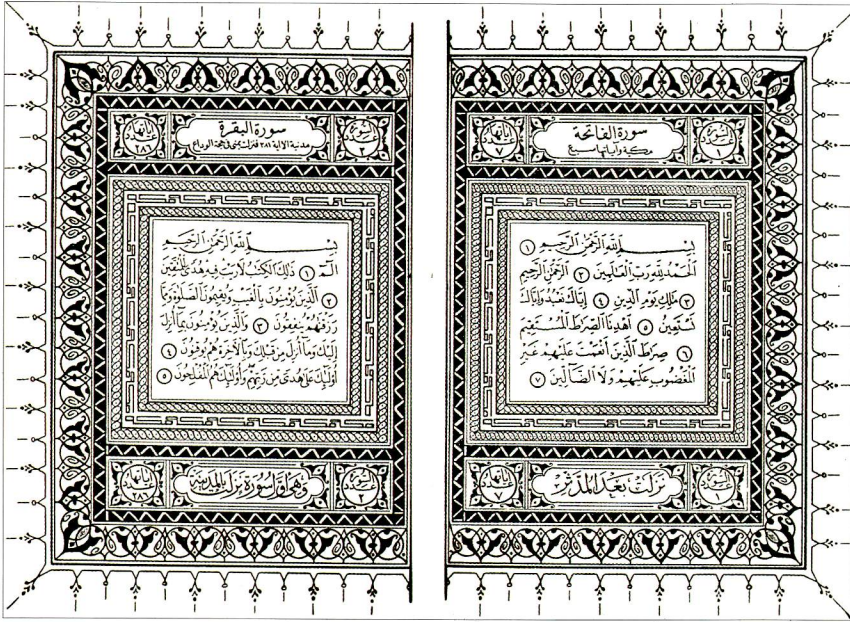 سورة الفاتحة
مكية وآياتها سبع
السورة ١
آياتها ٧
بِسْمِ ٱللَّهِ ٱلرَّحْمَٰنِ ٱلرَّحِيمِ ١
ٱلْحَمْدُ لِلَّهِ رَبِّ ٱلْعَٰلَمِينَ ٢ ٱلرَّحْمَٰنِ ٱلرَّحِيمِ
٣ مَٰلِكِ يَوْمِ ٱلدِّينِ ٤ إِيَّاكَ نَعْبُدُ وَإِيَّاكَ
نَسْتَعِينُ ٥ ٱهْدِنَا ٱلصِّرَٰطَ ٱلْمُسْتَقِيمَ
٦ صِرَٰطَ ٱلَّذِينَ أَنْعَمْتَ عَلَيْهِمْ غَيْرِ
ٱلْمَغْضُوبِ عَلَيْهِمْ وَلَا ٱلضَّآلِّينَ ٧
السورة ١
نزلت بعد المدثر
آياتها ٧
السورة ٢
سورة البقرة
مدنية إلا آية ٢٨١ فنزلت بمنى في حجة الوداع
آياتها ٢٨٦
بِسْمِ ٱللَّهِ ٱلرَّحْمَٰنِ ٱلرَّحِيمِ
الٓمٓ ١ ذَٰلِكَ ٱلْكِتَٰبُ لَا رَيْبَ فِيهِ هُدًى لِّلْمُتَّقِينَ
٢ ٱلَّذِينَ يُؤْمِنُونَ بِٱلْغَيْبِ وَيُقِيمُونَ ٱلصَّلَوٰةَ وَمِمَّا
رَزَقْنَٰهُمْ يُنفِقُونَ ٣ وَٱلَّذِينَ يُؤْمِنُونَ بِمَآ أُنزِلَ
إِلَيْكَ وَمَآ أُنزِلَ مِن قَبْلِكَ وَبِٱلْءَاخِرَةِ هُمْ يُوقِنُونَ ٤
أُو۟لَٰٓئِكَ عَلَىٰ هُدًى مِّن رَّبِّهِمْ وَأُو۟لَٰٓئِكَ هُمُ ٱلْمُفْلِحُونَ ٥
السورة ٢
وهي أول سورة نزلت بالمدينة
آياتها ٢٨٦